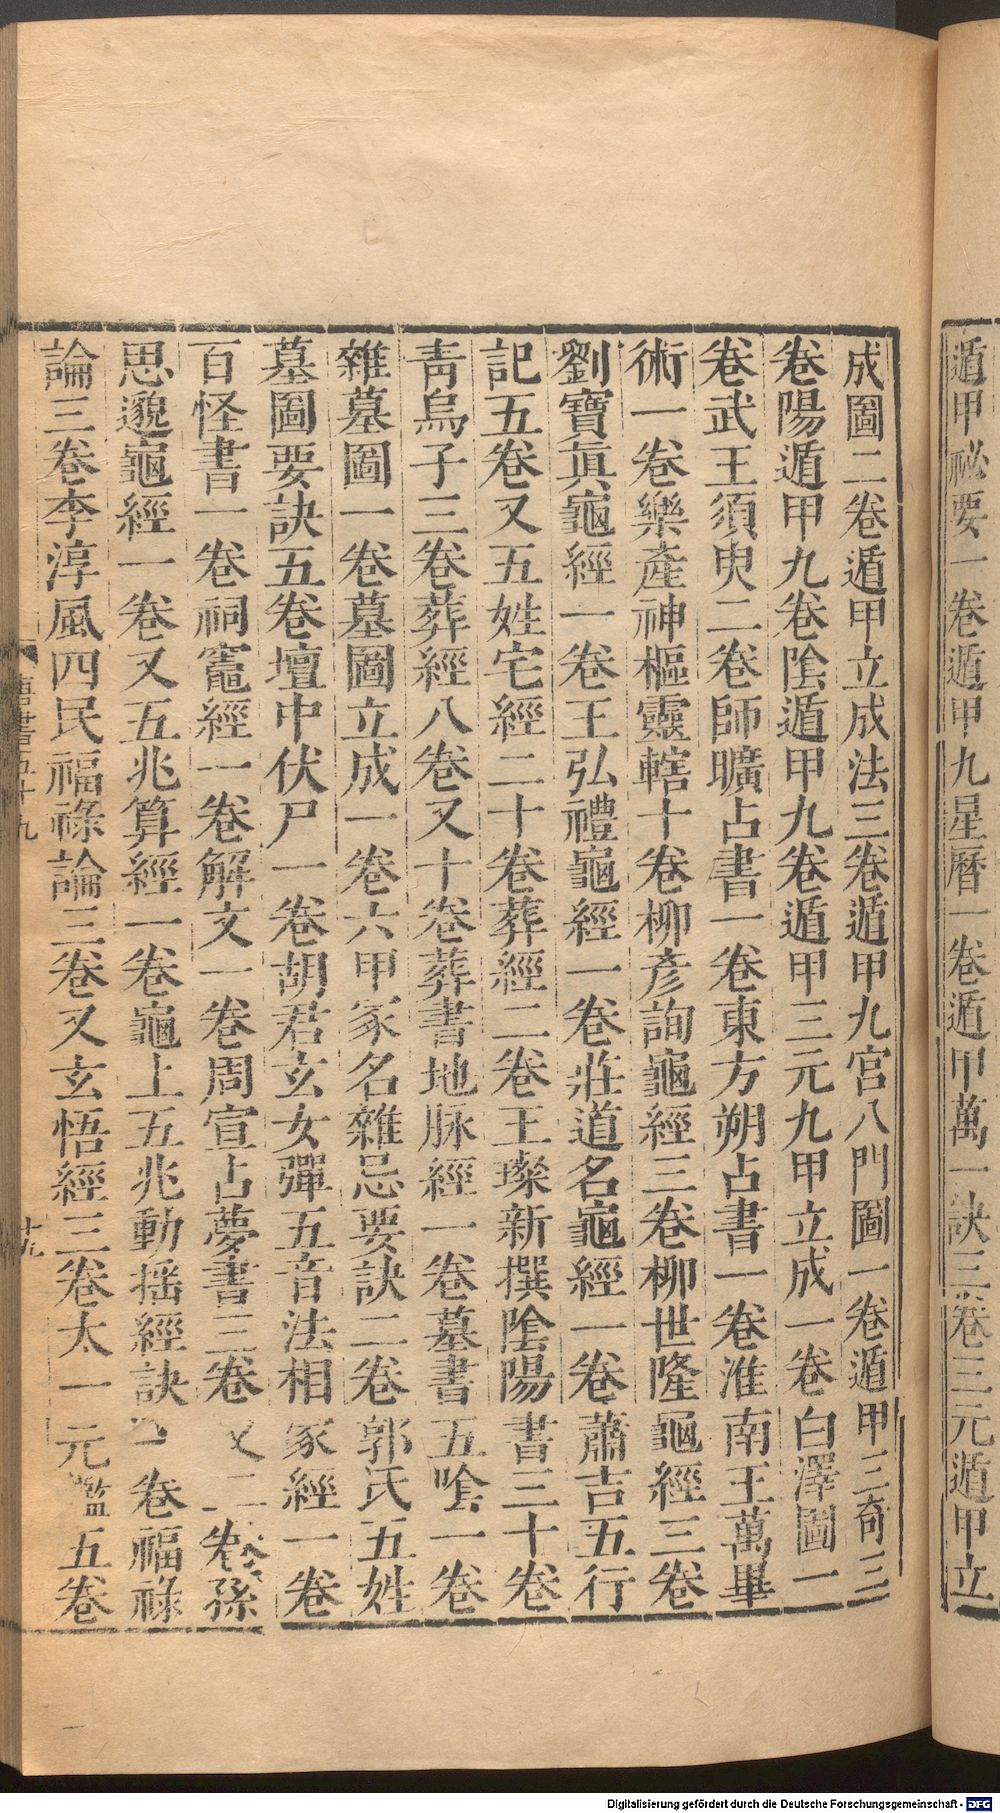 遁甲祕要一卷遁甲九星曆一卷遁甲萬一訣三卷三元遁甲立
成圖二卷遁甲立成法三卷遁甲九宮八門圖一卷遁甲三奇三
卷陽遁甲九卷陰遁甲九卷遁甲三元九甲立成一卷白澤圖一
卷武王須臾二卷師曠占書一卷東方朔占書一卷淮南王萬畢
術一卷樂產神樞靈轄十卷柳彥詢龜經三卷柳世隆龜經三卷
劉寶眞龜經一卷王弘禮龜經一卷莊道名龜經一卷蕭吉五行
記五卷又五姓宅經二十卷葬經二卷王璨新撰陰陽書三十卷
靑烏子三卷葬經八卷又十卷葬書地脉經一卷墓書五陰一卷
雜墓圖一卷墓圖立成一卷六甲冢名雜忌要訣二卷郭氏五姓
墓圖要訣五卷壇中伏尸一卷胡君玄女彈五音法相冢經一卷
百怪書一卷祠竈經一卷解文一卷周宣占夢書三卷又二卷孫
思邈龜經一卷又五兆算經一卷龜上五兆動搖經訣一卷福祿
論三卷李淳風四民福祿論三卷又玄悟經三卷太一元鑑五卷
唐書五十九
十九
Digitalisierung gefördert durch die Deutsche Forschungsgemeinschaft - DFG